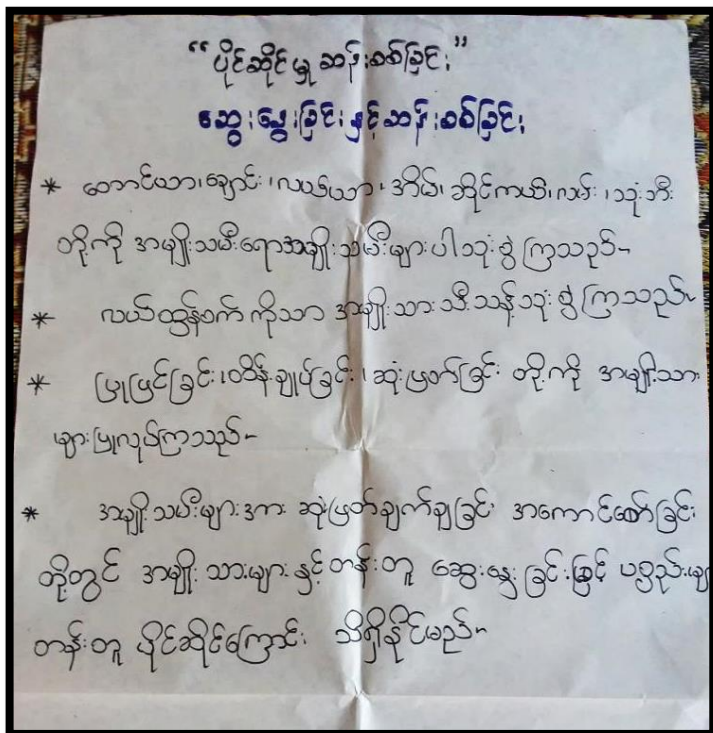 “ပိုင်ဆိုင်မှု ဆန်းစစ်ခြင်း”
ဆွေးနွေးခြင်းနှင့်ဆန်းစစ်ခြင်း
* တောင်ယာ၊ချောင်း၊လယ်ယာ၊အိမ်၊ဆိုင်ကယ်၊လမ်း၊သုံးဘီး
တို့ကို အမျိုးသမီးရောအမျိုးသမီးများပါသုံးစွဲကြသည်။
* လယ်ထွန်စက်ကိုသာ အမျိုးသားသီးသန့်သုံးစွဲကြသည်။
* ပြုပြင်ခြင်း၊ထိန်းချုပ်ခြင်း၊ဆုံးဖြတ်ခြင်း တို့ကို အမျိုးသား
များပြုလုပ်ကြသည်။
* အမျိုးသမီးများအား ဆုံးဖြတ်ချက်ချခြင်း အကောင်ဖော်ခြင်း
တို့တွင် အမျိုးသားများနှင့်တန်းတူ ဆွေးနွေးခြင်းဖြင့် ပစ္စည်းမျ
တန်းတူ ပိုင်ဆိုင်ကြောင်း သိရှိနိုင်မည်။